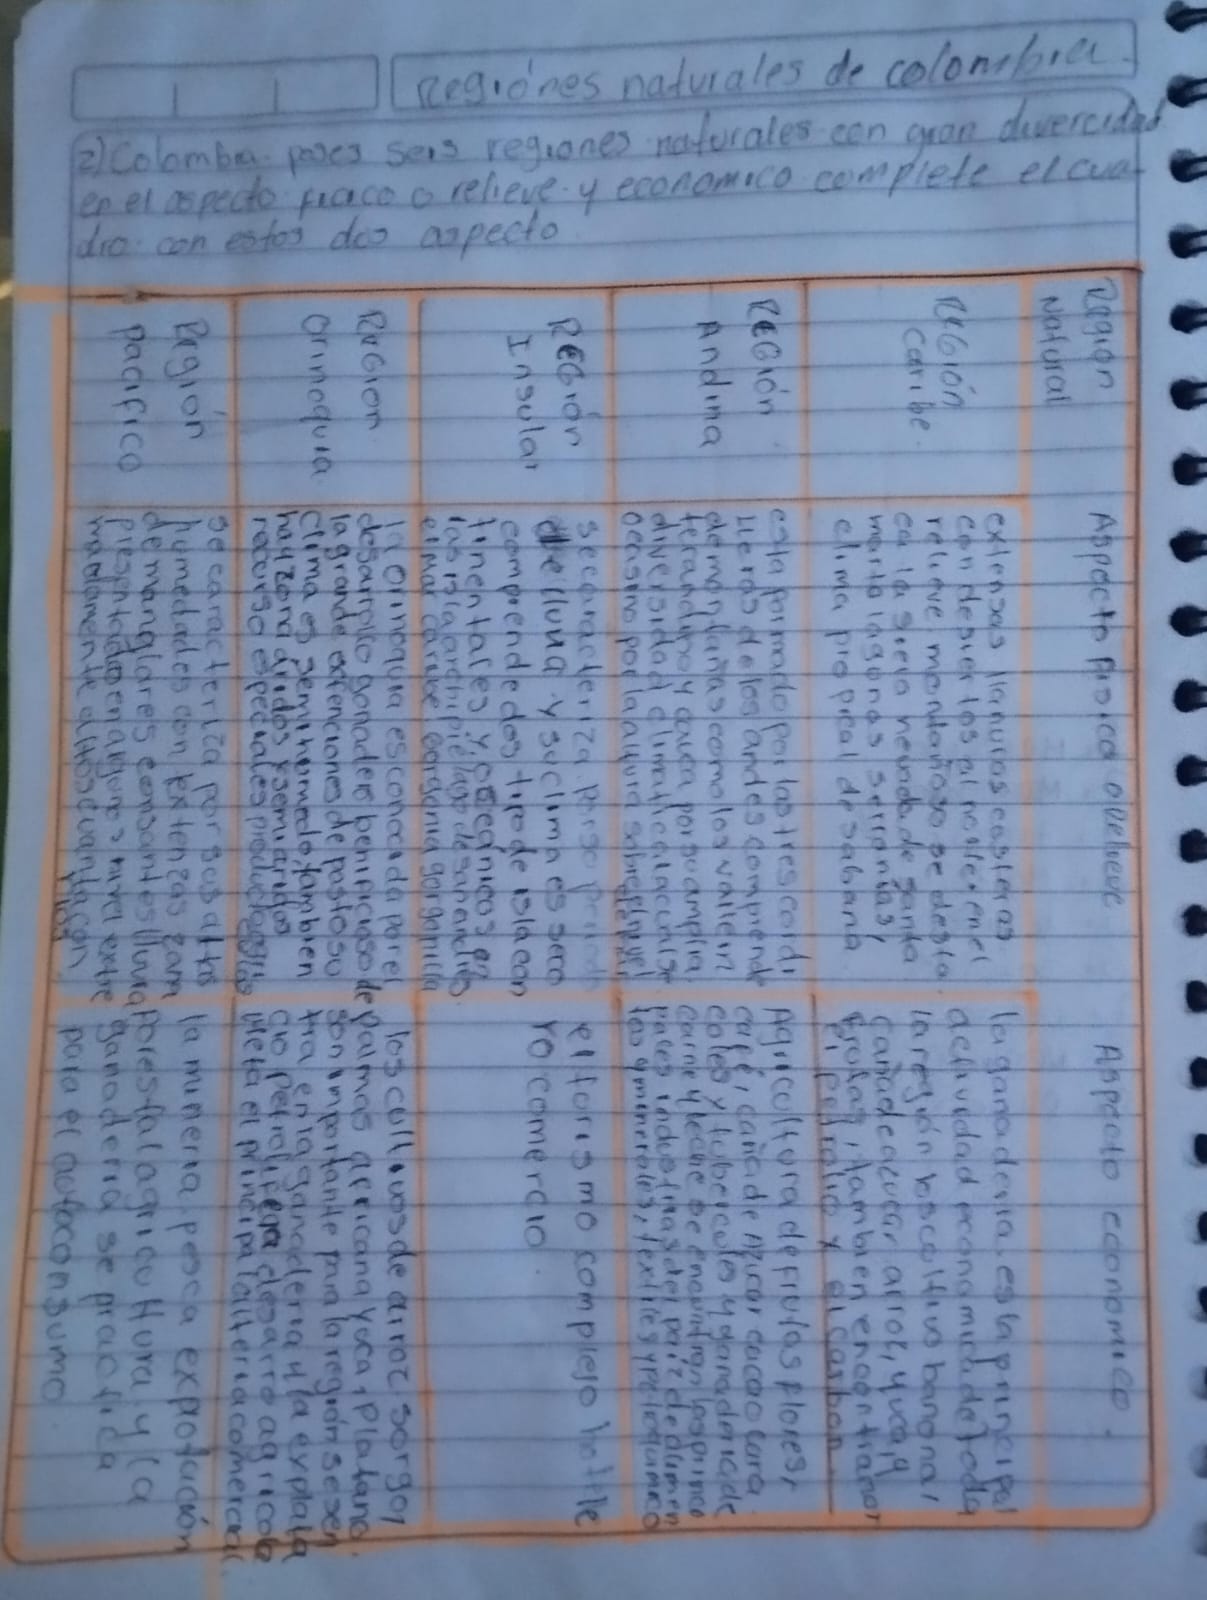 Regiónes naturales de colombia.
2) Colombia poses seis regiones naturales con gran divercidad
en el aspecto fisico o relieve y economico complete el cua
dro con estos dos aspecto
Region
Natural
Aspecto Fisico o Relieve
Aspecto economico.
REGIÓN
caribe.
extensas llanuras costeras
con desiertos al noreste en el
relieve montañoso se desta
ca la siera nevada de santa
marta lagonas serranias,
clima propical de sabana
la ganaderia es la principal
actividad economica de toda
la región los coltivos banona,
caña de azucar, arroz, yuca, y
frutas, tambien encontramor
el petrolio y el casbon
REGIÓN
Andina
esta formado por las tres cordi
lleras de los andes comprende
de montañas como los valle in
terandino y cauca por su amplia
diversidad climatica la cual se
ocasino por la altura sobre el nivel
Agricoltura de frutas flores,
café, caña de Azucar cacao
cales y tubercules y ganaderia de
carne y leche se encuintran los prince
paces industrias del país de alimen
tos y minerales, textiles y petroquimico
REGIÓN
Insular
se caracteriza por so
de lluvia y su clima es sero
comprende dos tipo de isla con
tinentales y oceanicos en
las isla archipielago de san andres.
el mar caribe gorgonia gorgonilla
el torismo complejo hotele
ro comercio
REGION
orinoquia
la Orinoquia es conocida por el
desarroleo ganadero benificioso de
la grande extenciones de pastos su
clima es semihumedo, tambien
hay zona aridos y semiaridos
recurso especiales
los coltivos de arroz, sorgo,
palmas africana yuca, platano.
son importante para la región se sen
tra en la ganaderia y la explota
cuo petrolifera desarro agricola
meta el principal arteria comercial
Región
pacifico
se caracteriza por sus altas
humedades con extenzas zam
de manglares consantes lluvia
presentado en
macromente altos evantacón
la mineria, pesca explotación
porestal agricultura y la
ganaderia se practica
para el autoconsumo.